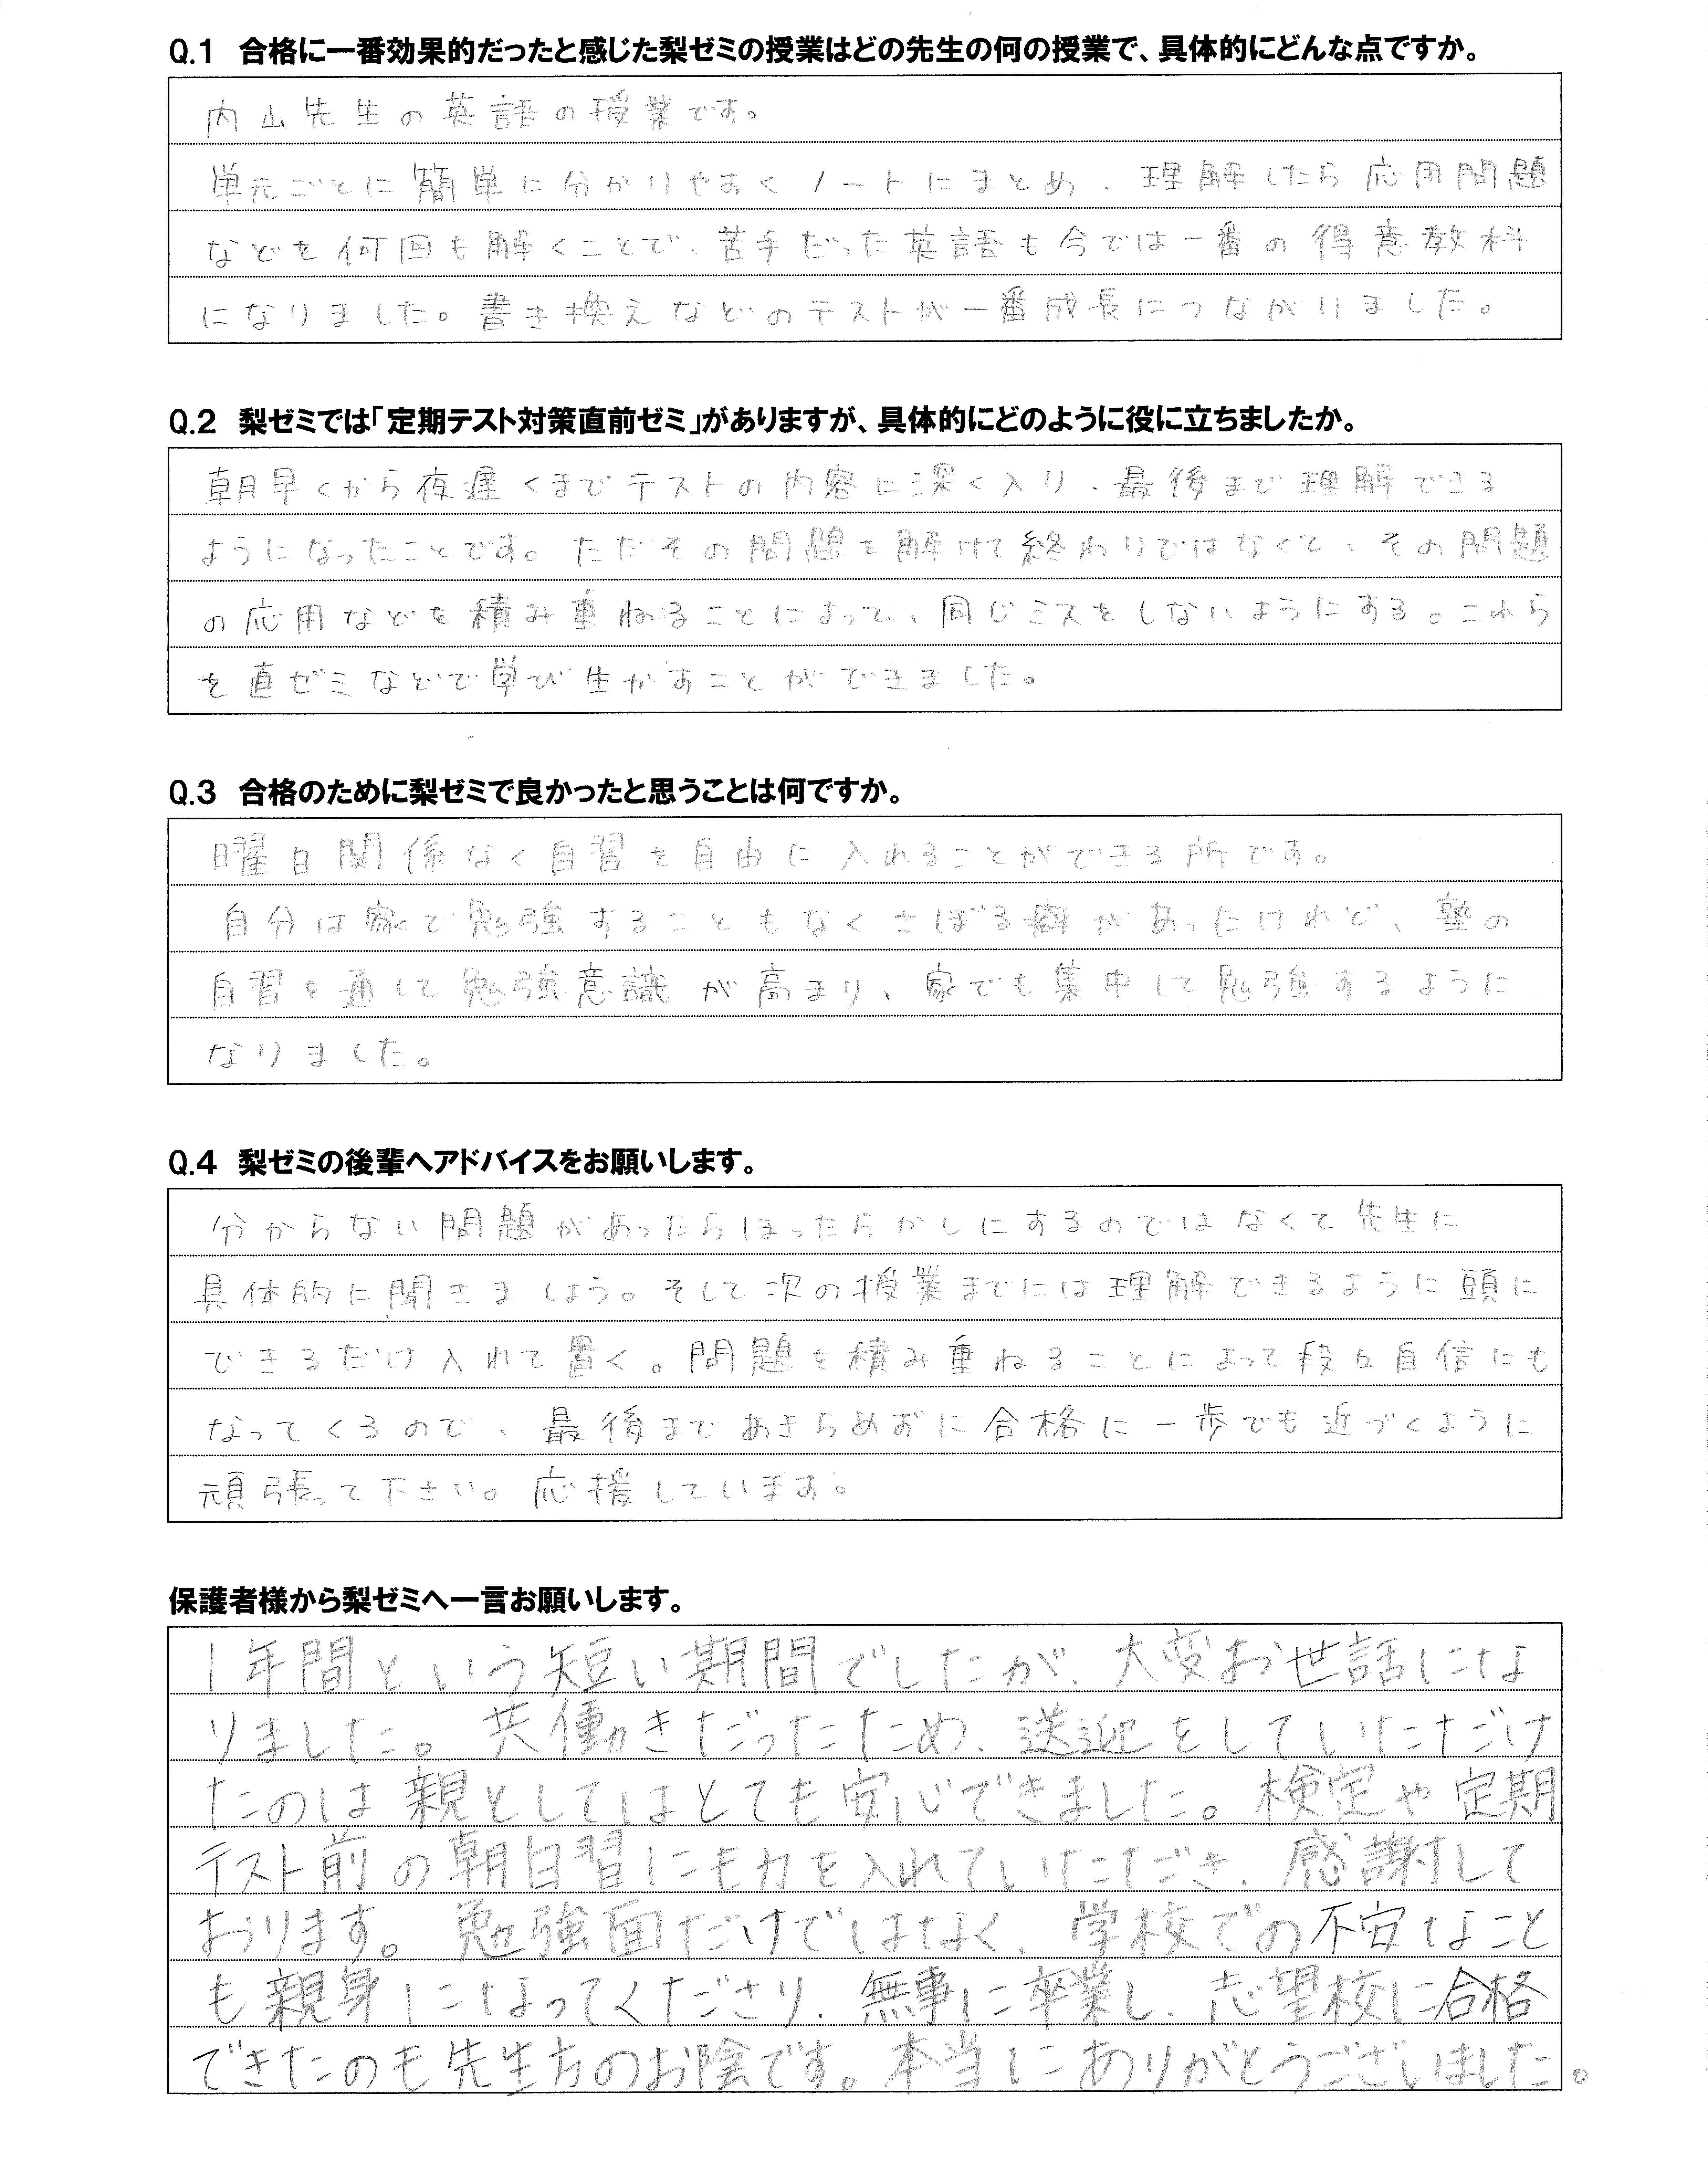 Q.1 合格に一番効果的だったと感じた梨ゼミの授業はどの先生の何の授業で、具体的にどんな点ですか。
内山先生の英語の授業です。
単元ごとに簡単に分かりやすくノートにまとめ、理解したら応用問題
などを何回も解くことで、苦手だった英語も今では一番の得意教科
になりました。書き換えなどのテストが一番成長につながりました。
Q.2 梨ゼミでは「定期テスト対策直前ゼミ」がありますが、具体的にどのように役に立ちましたか。
朝早くから夜遅くまでテストの内容に深く入り、最後まで理解できる
ようになったことです。ただその問題を解けて終わりではなくて、その問題
の応用などを積み重ねることによって、同じミスをしないようにする。これら
を直ゼミなどで学び生かすことができました。
Q.3 合格のために梨ゼミで良かったと思うことは何ですか。
曜日関係なく自習を自由に入れることができる所です。
自分は家で勉強することもなくさぼる癖があったけれど、塾の
自習を通して勉強意識が高まり、家でも集中して勉強するように
なりました。
Q.4 梨ゼミの後輩へアドバイスをお願いします。
分からない問題があったらほったらかしにするのではなくて先生に
具体的に聞きましょう。そして次の授業までには理解できるように頭に
できるだけ入れて置く。問題を積み重ねることによって段々自信にも
なってくるので、最後まであきらめずに合格に一歩でも近づくように
頑張って下さい。応援しています。
保護者様から梨ゼミへ一言お願いします。
1年間という短い期間でしたが、大変お世話にな
りました。共働きだったため、送迎をしていただけ
たのは親としてはとても安心できました。検定や定期
テスト前の朝自習にも力を入れていただき、感謝して
おります。勉強面だけではなく、学校での不安なこと
も親身になってくださり、無事に卒業し、志望校に合格
できたのも先生方のお陰です。本当にありがとうございました。